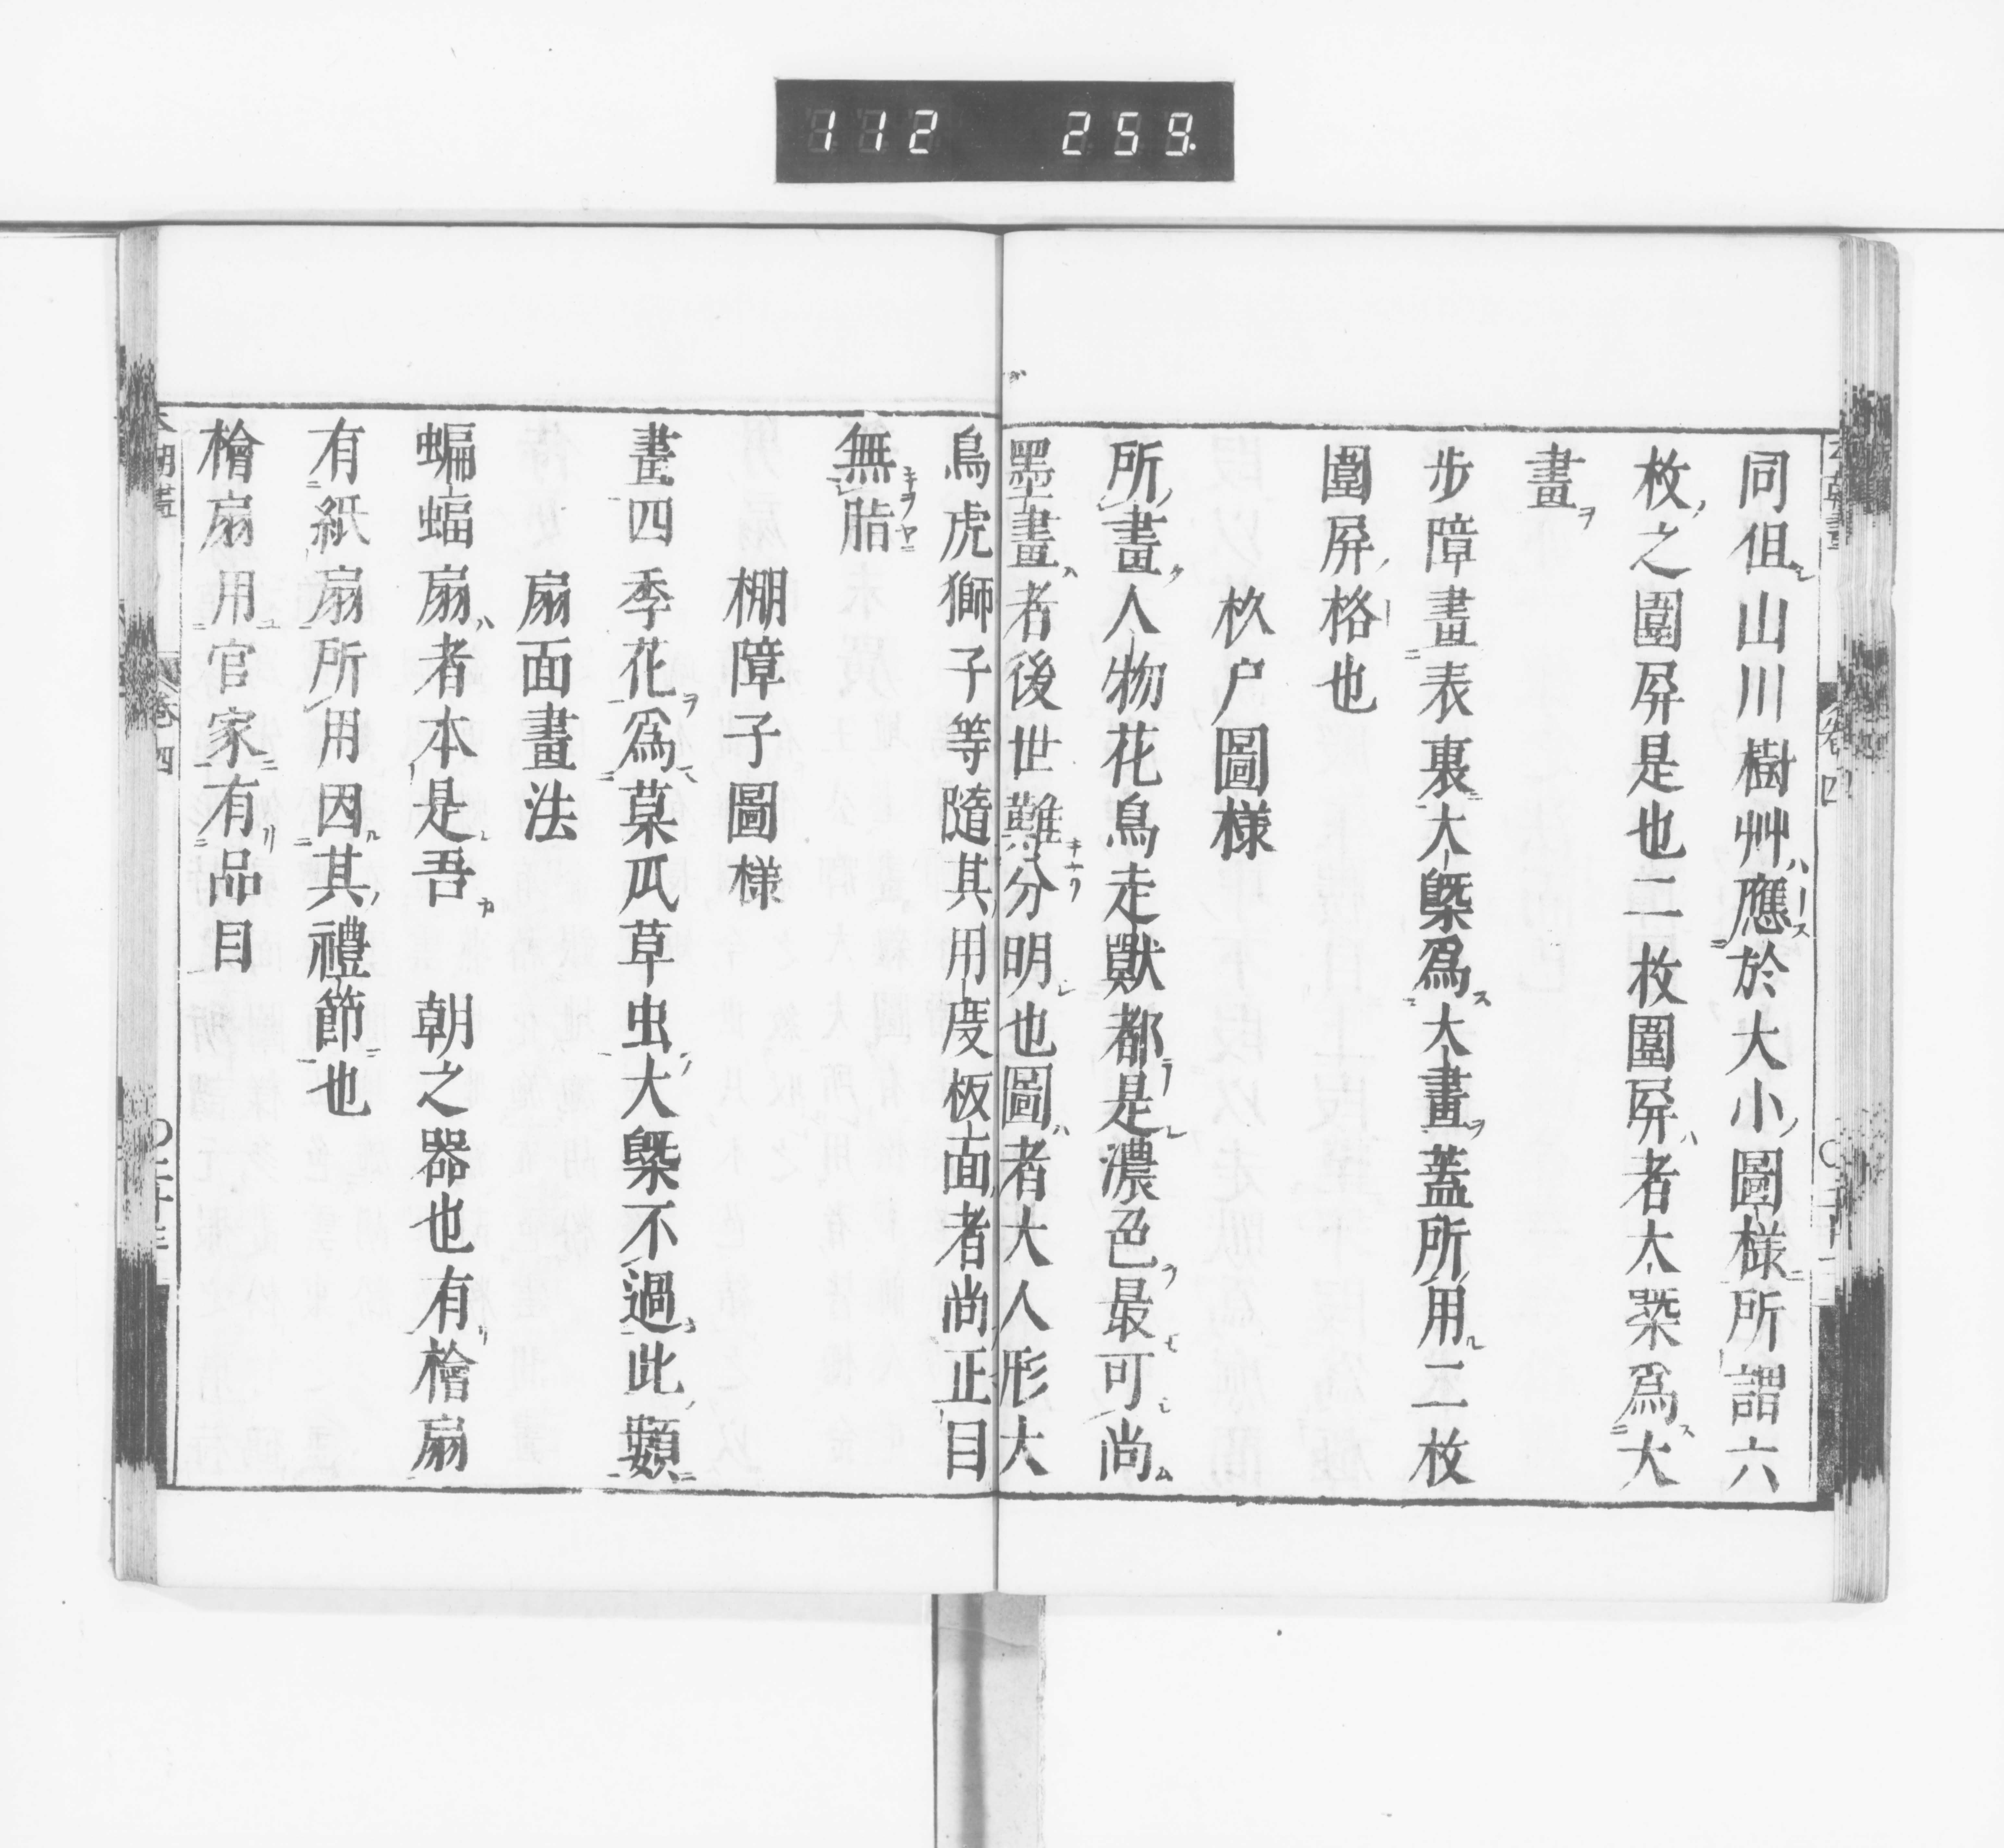 112 259
同但山川樹艸應於大小圖様所謂六
枚之圍屏是也二枚圍屏者大槩爲大
畫
步障畫表裏大槩爲大畫蓋所用二枚
圍屏格也
杦户圖様
所畫人物花鳥走獸都是濃色最可尚
墨畫者後世難分明也圖者大人形大
鳥虎獅子等隨其用度板面者尚正目
無脂
棚障子圖様
畫四季花爲菓瓜草虫大槩不過此類
扇面畫法
蝙蝠扇者本是吾　朝之器也有檜扇
有紙扇所用因其禮節也
檜扇用官家有品目